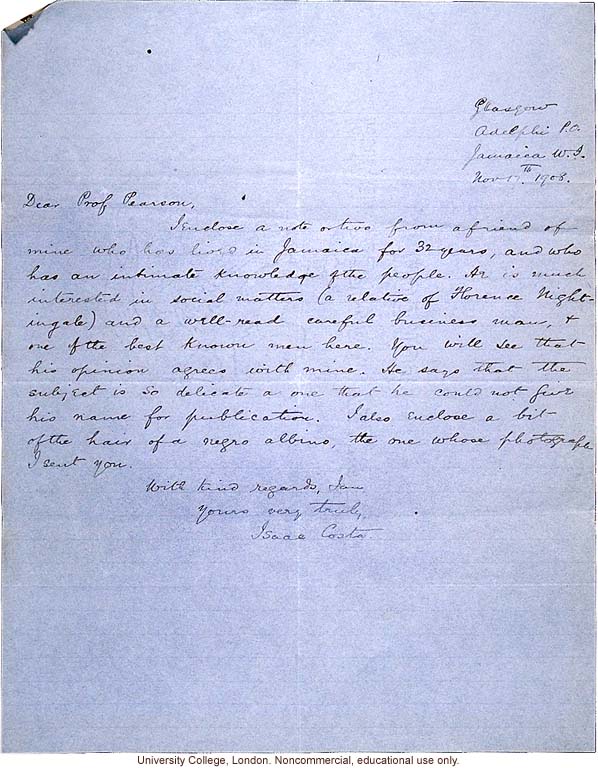 Glasgow
Adelphi P.O.
Jamaica W.I.
Nov 17th 1908.
Dear Prof Pearson,
I enclose a note or two from a friend of
mine who has lived in Jamaica for 32 years, and who
has an intimate knowledge of the people. He is much
interested in social matters (a relative of Florence Night-
ingale) and a well-read careful business man, &
one of the best known men here. You will see that
his opinion agrees with mine. He says that the
subject is so delicate a one that he could not give
his name for publication. I also enclose a bit
of the hair of a negro albino, the one whose photograph
I sent you.
With kind regards, I am
Yours very truly,
Isaac Costa
University College, London. Noncommercial, educational use only.